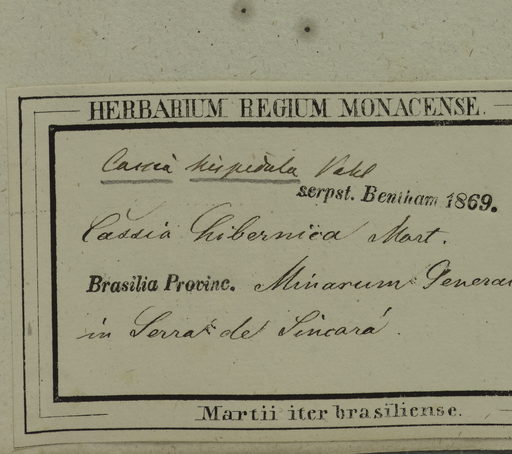 HERBARIUM REGIUM MONACENSE.
Cassia hispidula Vahl
serpst. Bentham 1869.
Cassia hibernica Mart.
Brasilia Provinc. Minarum Generar
in Serra de Sincorá.
Martii iter brasiliense.